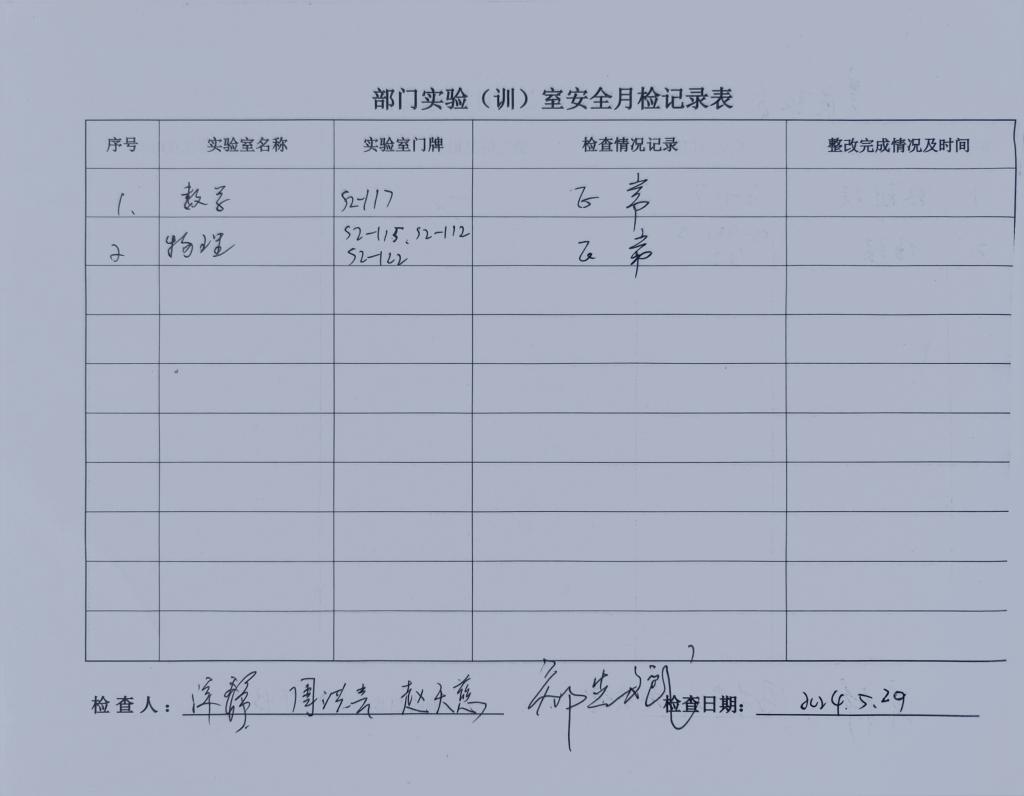 部门实验（训）室安全月检记录表
序号 实验室名称 实验室门牌 检查情况记录 整改完成情况及时间
1. 数学 S2-117 正常
2 物理 S2-115、S2-112 S2-122 正常
检查人： 周洪吉 赵天慈 检查日期： 2024.5.29